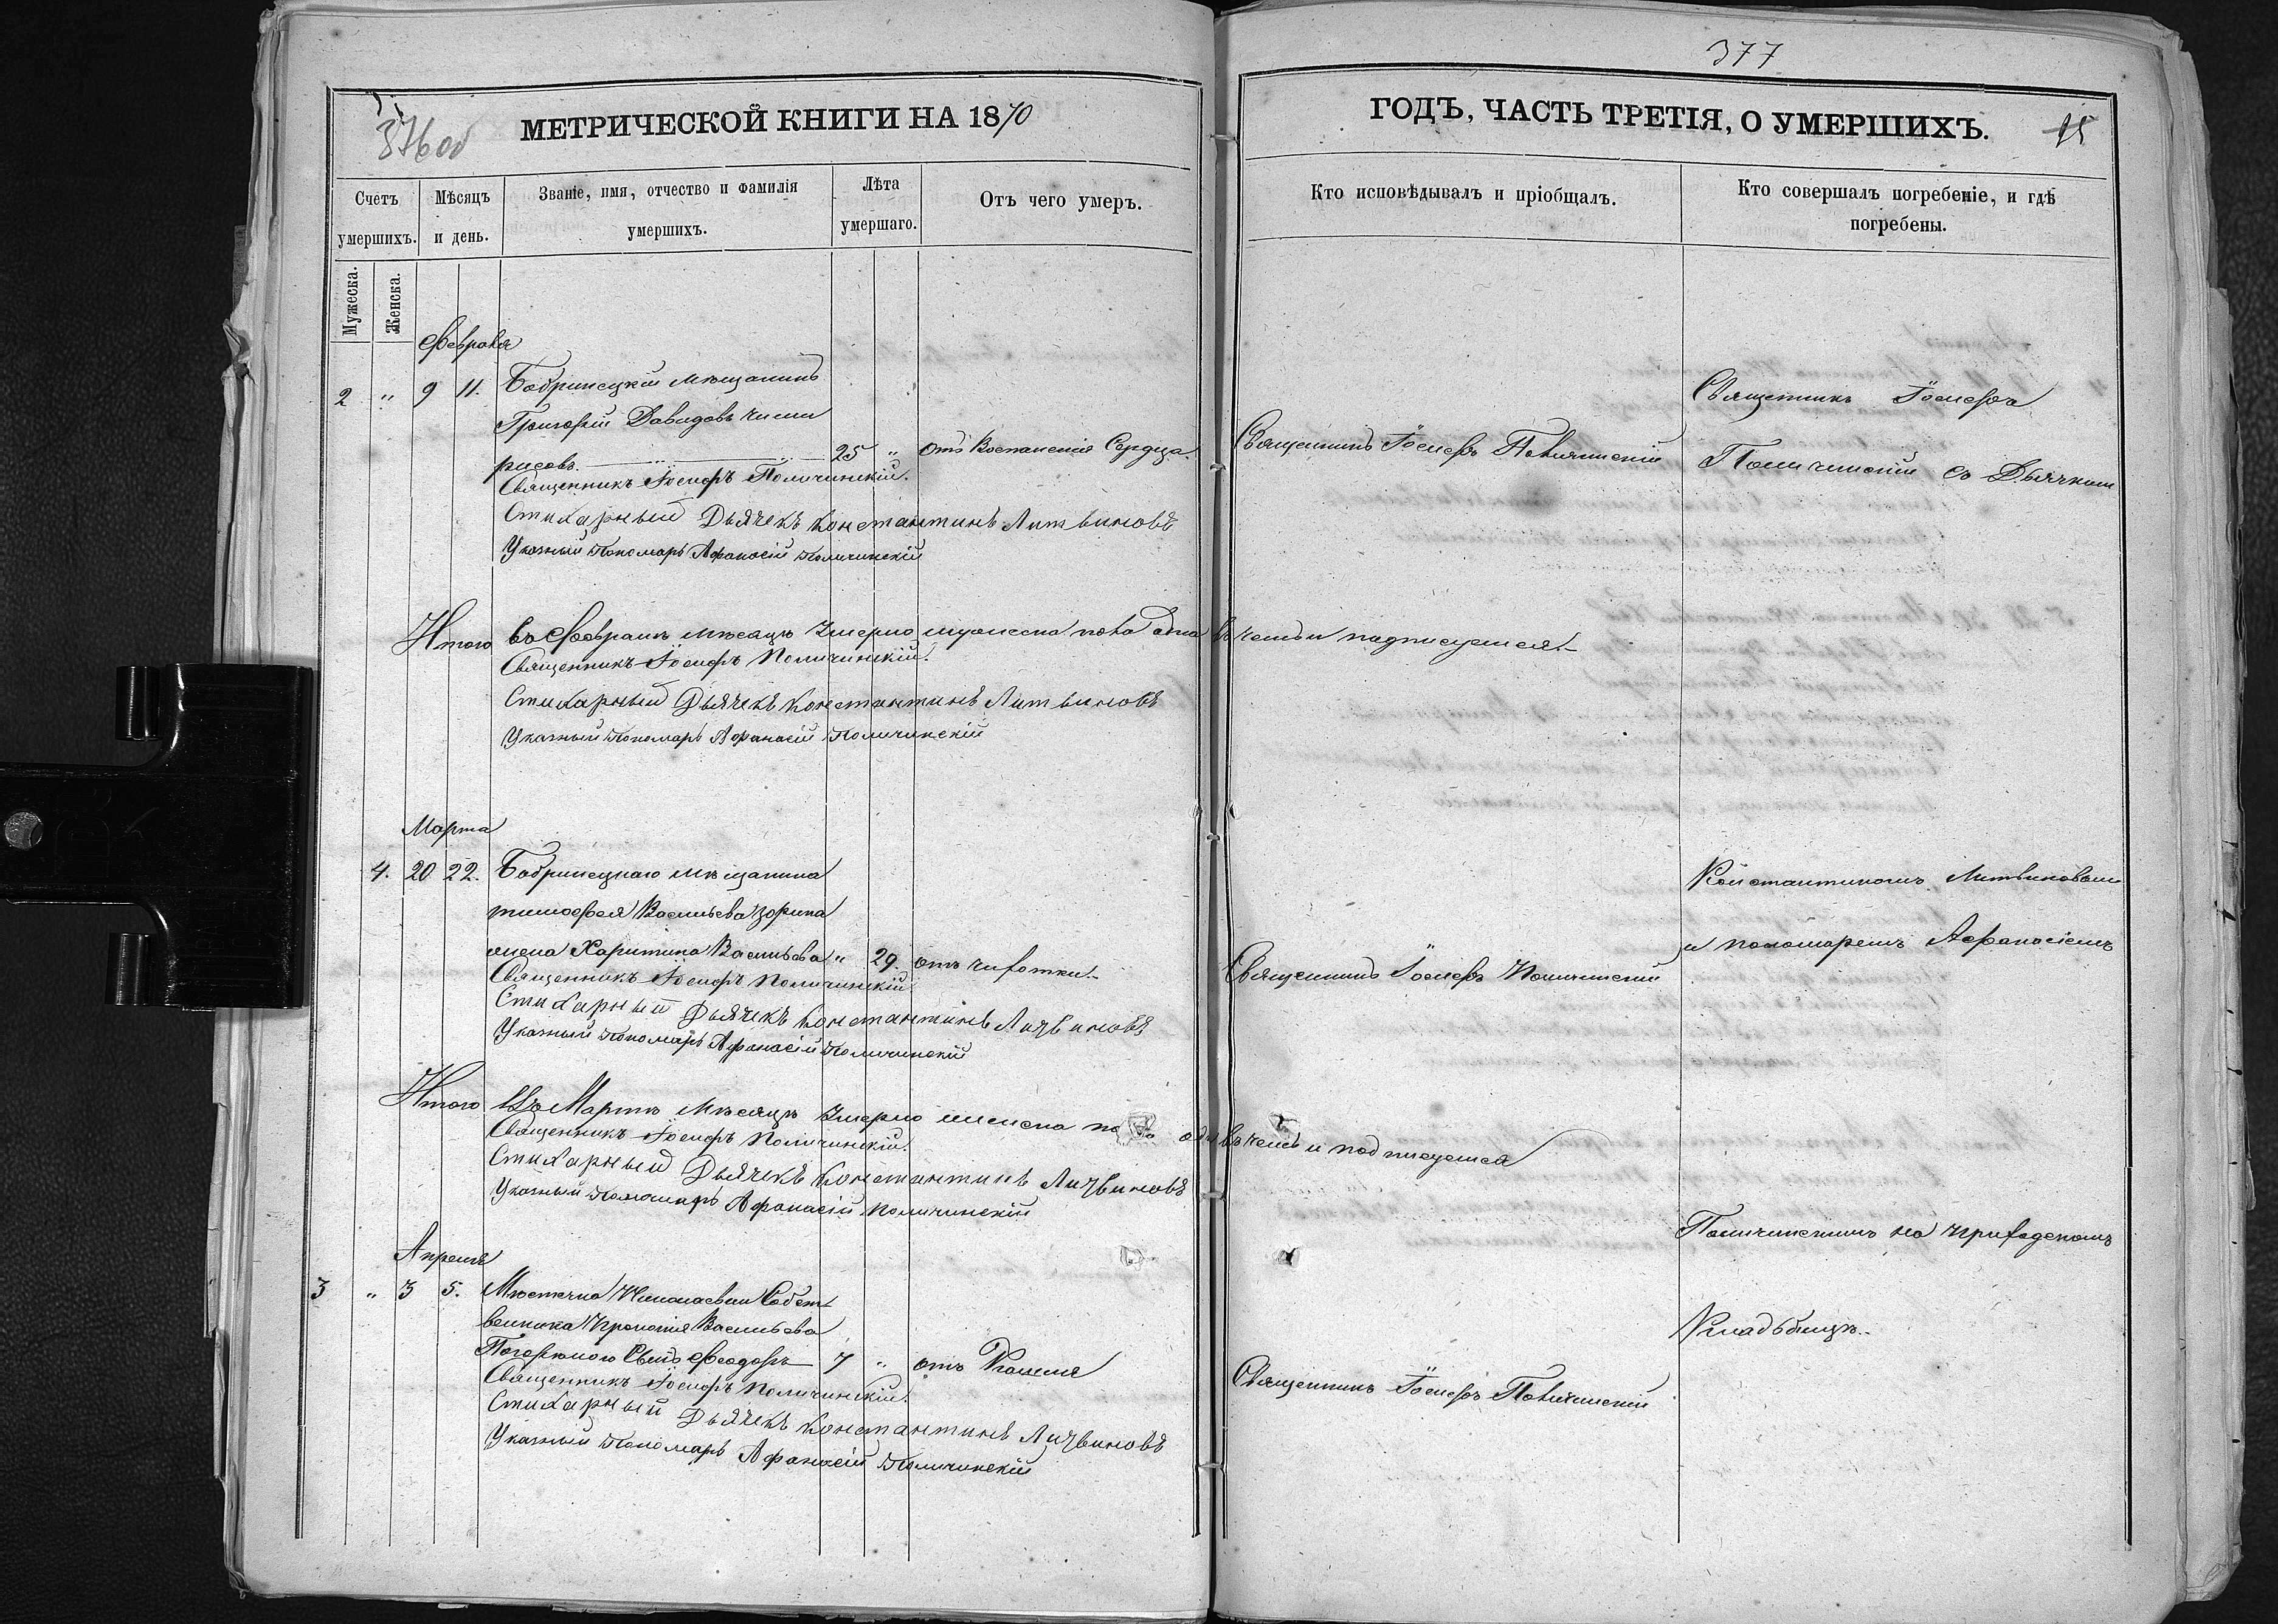 376 об
МЕТРИЧЕСКОЙ КНИГИ НА 1870
Счетъ умершихъ.
Мѣсяцъ и день.
Званіе, имя, отчество и фамилія умершихъ.
Лѣта умершаго.
Отъ чего умеръ.
Мужеска.
Женска.
Февраля
2 „ 9 11. Бобринецкій мѣщанинъ
Григорій Давидовъ
рисовъ. 25 „ отъ Воспаленія Сердца.
Священникъ Іосифъ Поличинскій.
Стихарный Дьячекъ Константинъ Литвиновъ
Указный Пономарь Афанасій Поличинскій
Итого въ Февралѣ мѣсяцѣ Умерло мужеска пола одна въ чемъ и подписуемся.
Священникъ Іосифъ Поличинскій.
Стихарный Дьячекъ Константинъ Литвиновъ
Указный Пономарь Афанасій Поличинскій
Марта
4. 20 22. Бобринецкаго мѣщанина
тимофея Васильева зорина
жена Харитина Васильева „ 29. отъ чихотки.
Священникъ Іосифъ Поличинскій
Стихарный Дьячекъ Константинъ Литвиновъ
Указный Пономарь Афанасій Поличинскій
Итого Въ Мартѣ Мѣсяцѣ Умерло женска въ чемъ и подписуемся
Священникъ Іосифъ Поличинскій.
Стихарный Дьячекъ Константинъ Литвиновъ
Указный Пономарь Афанасій Поличинскій
Апреля
3 „ 3 5. Мѣстечка Николаевки Собст
венника Прокопія Васильева
Погорѣлого Сынъ Феодоръ 7 „ отъ Кашля
Священникъ Іосифъ Поличинскій.
Стихарный Дьячекъ Константинъ Литвиновъ
Указный Пономарь Афанасій Поличинскій
377
ГОДЪ, ЧАСТЬ ТРЕТІЯ, О УМЕРШИХЪ.
Кто исповѣдывалъ и пріобщалъ.
Кто совершалъ погребеніе, и гдѣ погребены.
Священникъ Іосифъ Поличинскій
Священникъ Іосифъ Поличинскій
Священникъ Іосифъ Поличинскій
Священникъ Іосифъ
Поличинскій со Дьячкомъ
Константиномъ Литвиновымъ
и пономаремъ Афанасіемъ
Поличинскимъ на приходскомъ
Кладбищѣ.